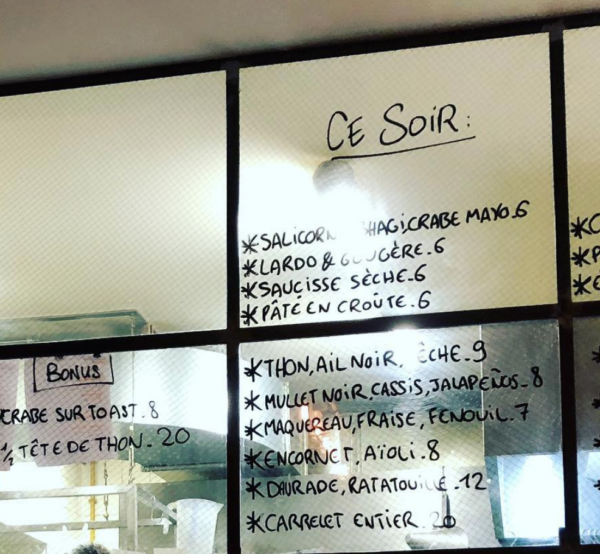 CE SOIR:
*SALICORN HAGI,CRABE MAYO.6
*LARDO & GOUGÈRE.6
*SAUCISSE SÈCHE.6
*PÂTÉ EN CROÛTE.6
BONUS
CRABE SUR TOAST.8
1/2 TÊTE DE THON.20
*THON, AIL NOIR, ÊCHE.9
*MULLET NOIR, CASSIS, JALAPEÑOS.8
*MAQUEREAU, FRAISE, FENOUIL.7
*ENCORNET, AÏOLI.8
*DAURADE, RATATOUILLE.12
*CARRELET ENTIER.